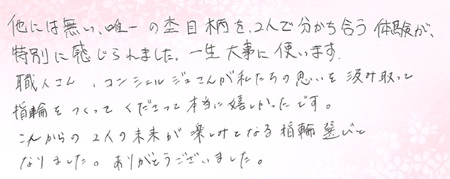 他には無い、唯一の杢目柄を、2人で分かち合う体験が、
特別に感じられました。一生大事に使います。
職人さん、コンシェルジュさんが私たちの思いを汲み取って
指輪をつくってくださって本当に嬉しかったです。
これからの2人の未来が楽しみとなる指輪選びと
なりました。ありがとうございました。